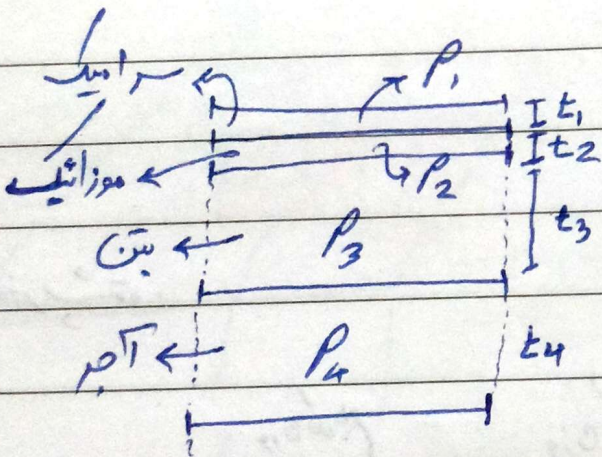 سرامیک ρ₁ t₁
موزائیک ρ₂ t₂
بتن ρ₃ t₃
آجر ρ₄ t₄